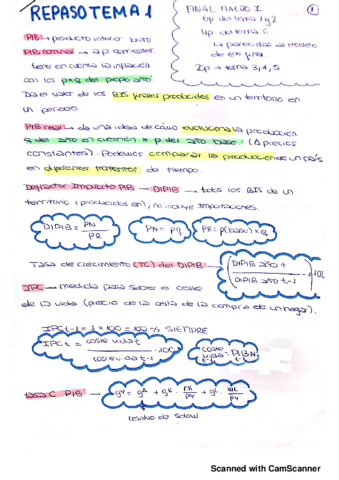 REPASO TEMA 1
FINAL MACRO I
①
6p de tema 1 y 2
4p de tema 6
↳ parecidas al modelo
de ex final
20p → tema 3,4,5
PIB → producto interior bruto
PIB nominal → a p corrientes.
tiene en cuenta la inflación
con los p×q del propio año
Da el valor de los BIS finales producidos en un territorio en
un periodo
PIB real → da una idea de cómo evoluciona la producción
q del año en cuestión × p del año base (A precios
constantes). Podemos comparar la producción de un país
en diferentes momentos de tiempo.
Deflactor Implícito PIB → DIPIB → todos los BIS de un
territorio (producidos en), no incluye importaciones.
DIPIB = PN/PR
PN = P·Q
PR = p(base) × q
Tasa de crecimiento (TC) del DIPIB →
DIPIB año t
DIPIB año t-1
IPC → medida para saber el coste
de la vida (precio de la cesta de la compra de un hogar).
IPC t-1 = 1 × 100 = 100% SIEMPRE
IPC t = coste vida t / coste v da t-1 · 100
coste vida = PIBN
tasa C PIB →
residuo de Solow
Scanned with CamScanner